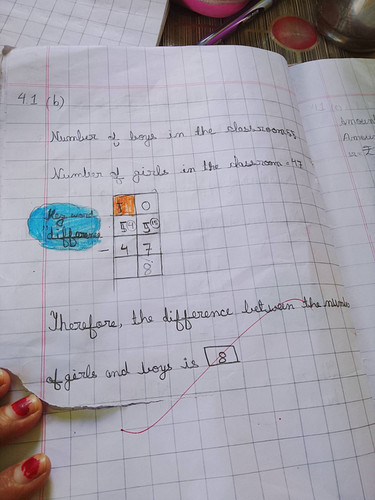 41 (b)
Number of boys in the classroom = 55
Number of girls in the classroom = 47
Key word
difference
T O
5 4 5 15
- 4 7
8
Therefore, the difference between the number
of girls and boys is 8
Amoun